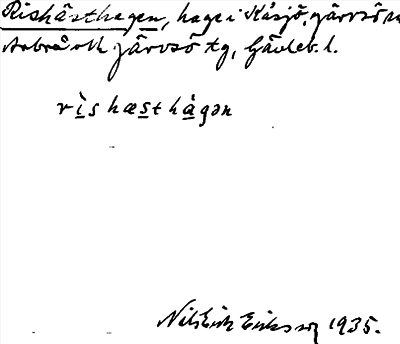 Rishästhagen, hage i Kåsjö, Järvsö sn
Arbrå o Järvsö tg, Gävleb. l.
rìshæsthàgən
Nils Erik Eriksson 1935.